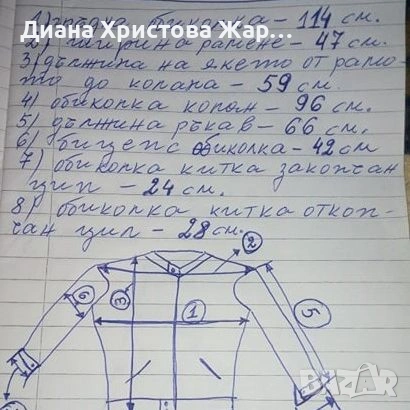 Диана Христова Жар...
1) гръдна обиколка - 114 см.
2) ширина рамене - 47 см.
3) дължина на якето от рамо-
то до колана - 59 см.
4) обиколка колан - 96 см.
5) дължина ръкав - 66 см.
6) бицепс обиколка - 42 см
7) обиколка китка закопчан
цип - 24 см.
8) обиколка китка откоп-
чан цип - 28 см.
2
3
1
6
5
BAZAR